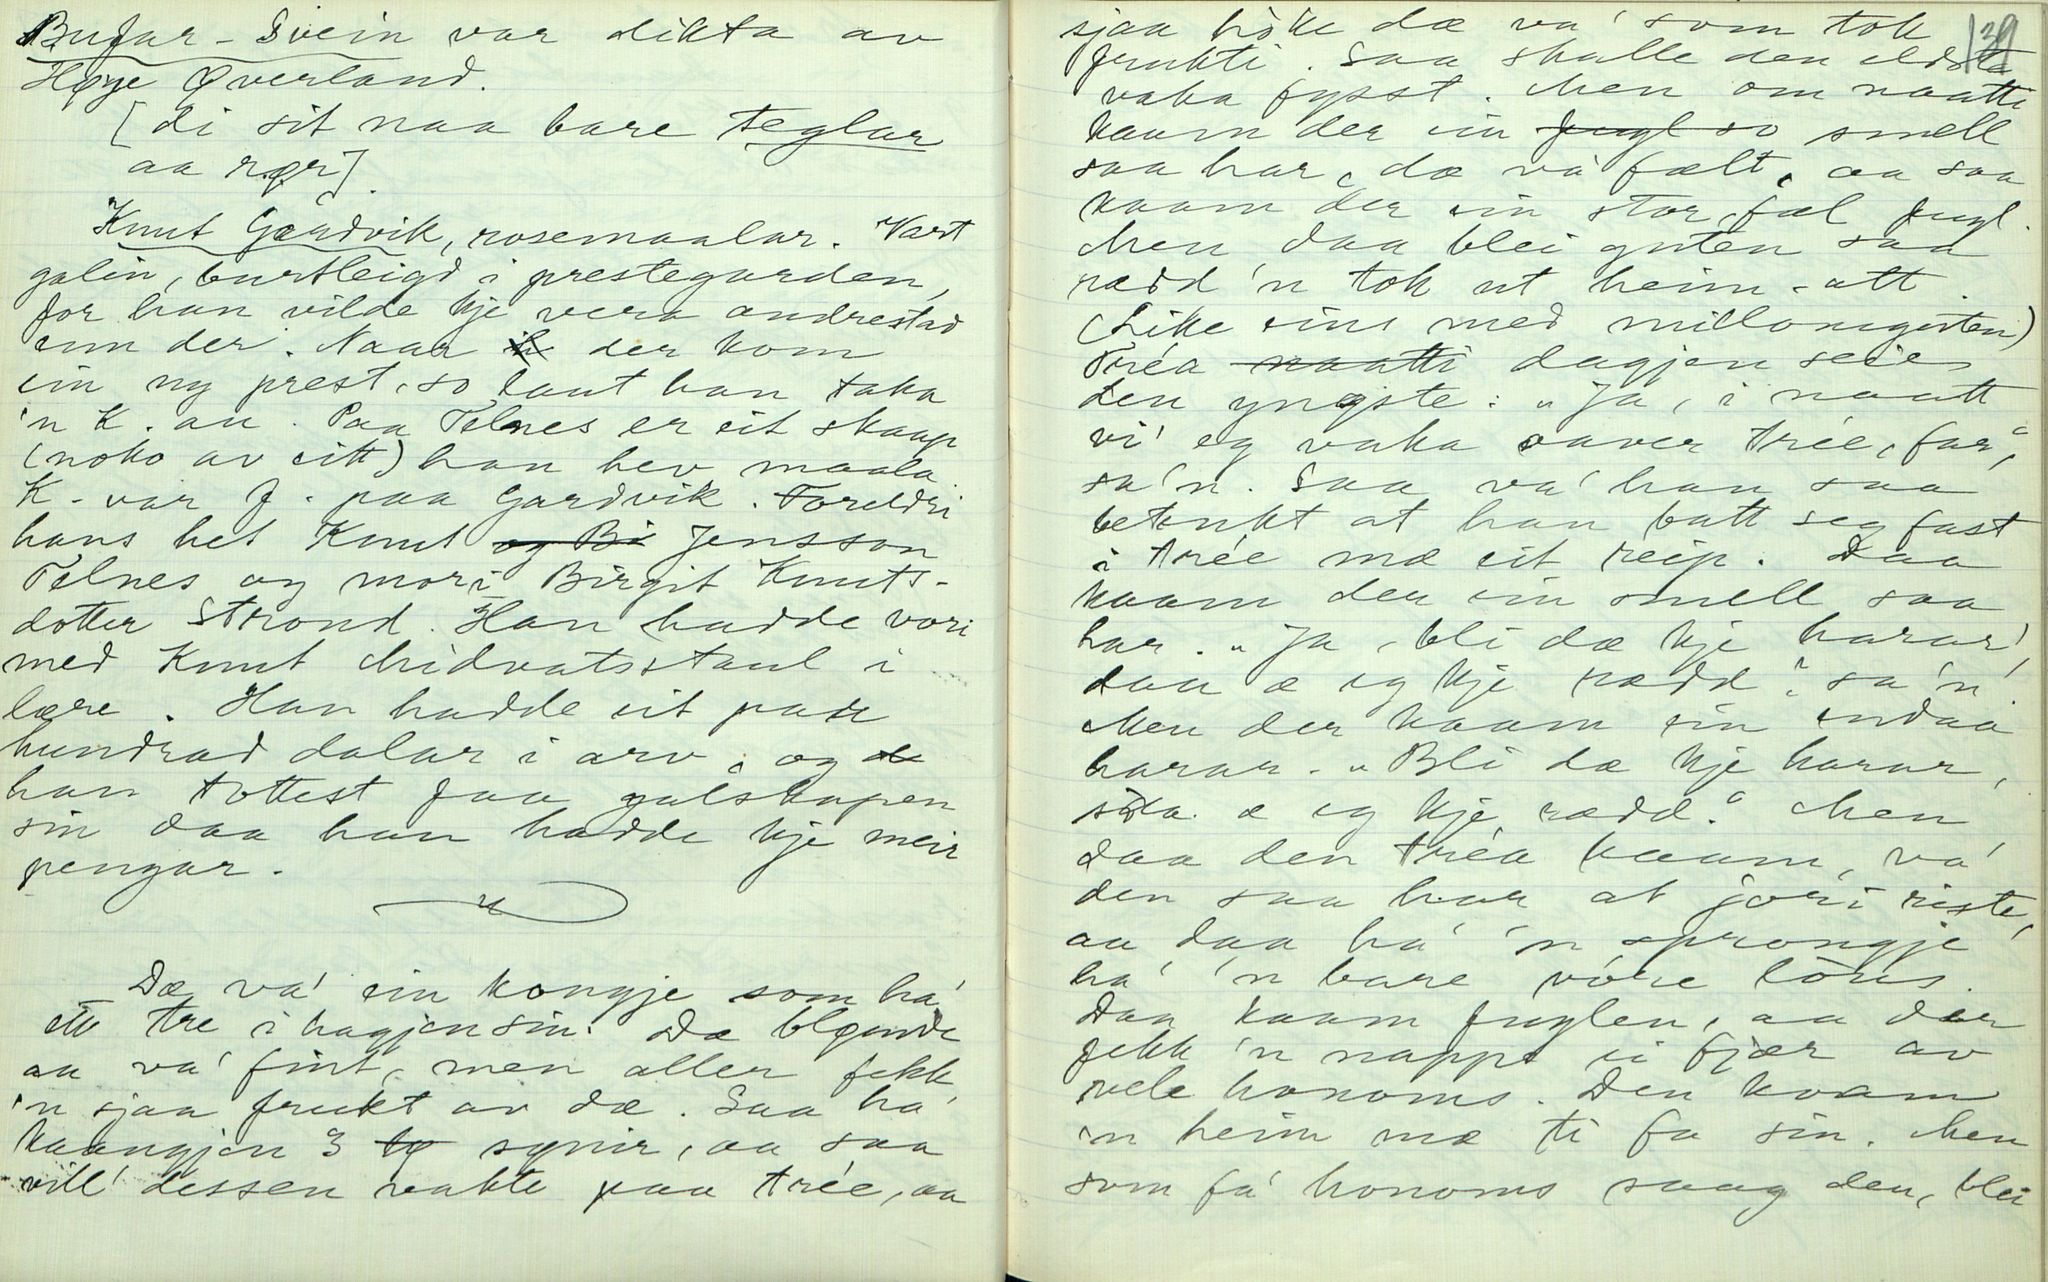 Bufar-Svein var dikta av
Høye Øverland.
[di sit naa bare teglar
aa rør].
Knut Gardvik, rosemaalar. Vart
galin, burtleigd i prestegarden,
for han vilde kje vera andrestad
enn der. Naar der kom
ein ny prest, so laut han taka
'n K. an. Paa Telnes er eit skaap
(noko av eitt) han hev maala
K. var f. paa Gardvik. Foreldri
hans het Knut og Bi Jensson
Telnes og mori Birgit Knuts-
dotter Strond. Han hadde vori
med Knut Midvatsstaul i
lære. Han hadde eit par
hundrad dalar i arv, og de
han tottest faa galskapen
sin daa han hadde kje meir
pengar.
Dæ va' ein kongje som ha'
eit tre i hagjen sin. Dæ blømde
aa va' fint, men aller fekk
'n sjaa frukt av dæ. Saa ha'
kaangjen 3 sønir, aa saa
vill' dessen vakte paa trée, aa
139
sjaa hòke dæ va' som tok
frukti. Saa skulle den eldste
vaka fysst. Men om naatti
kaam der ein fugl so smell
saa har, dæ va' fælt, aa saa
kaam der ein stor, fæl fugl.
Men daa blei guten saa
rædd 'n tok ut heim-att.
(Like eins med millomguten)
Tréa naatti dagjen seier
den yngste: "Ja, i naatt
vi' eg vaka aaver trée, far",
sa'n. Saa va' han saa
betenkt at han batt seg fast
i trée mæ eit reip. Daa
kaam der ein smell saa
har. "Ja, bli dæ kje harar',
daa æ eg kje rædd", sa'n.
Men der kaam ein endaa
harar. "Bli dæ kje harar,
sòa æ eg kje rædd." Men
daa den tréa kaam, va'
den saa har at jori riste,
aa daa ha' 'n sprongje
ha' 'n bare vòre lòus.
Daa kaam fuglen, aa der
fekk 'n nappe ei fjær av
vele honoms. Den kvam
'n heim mæ ti fa sin. Men
som fa' honoms saag den, blei